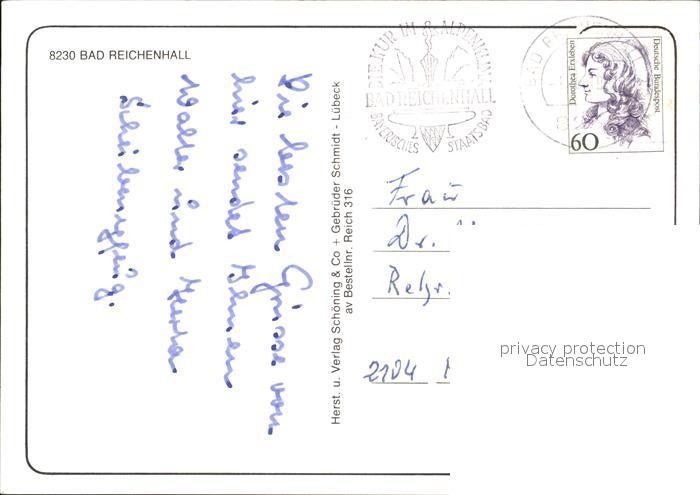 8230 BAD REICHENHALL
DIE KUR IM ALPENKLIMA
BAD REICHENHALL
BAYERISCHES STAATSBAD
BAD RE
Dorothea Erxleben
Deutsche Bundespost
60
Die besten Grüsse von
hier sendet Ihnen
Walter und Herta
Herst. u. Verlag Schöning & Co + Gebrüder Schmidt - Lübeck
av Bestellnr. Reich 316
Frau
Dr.
2104
privacy protection
Datenschutz